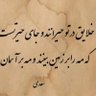 خلایق در تو حیرانند و جای حیرتست
که مه را بر زمین بینند و مه بر آسمان
سعدی